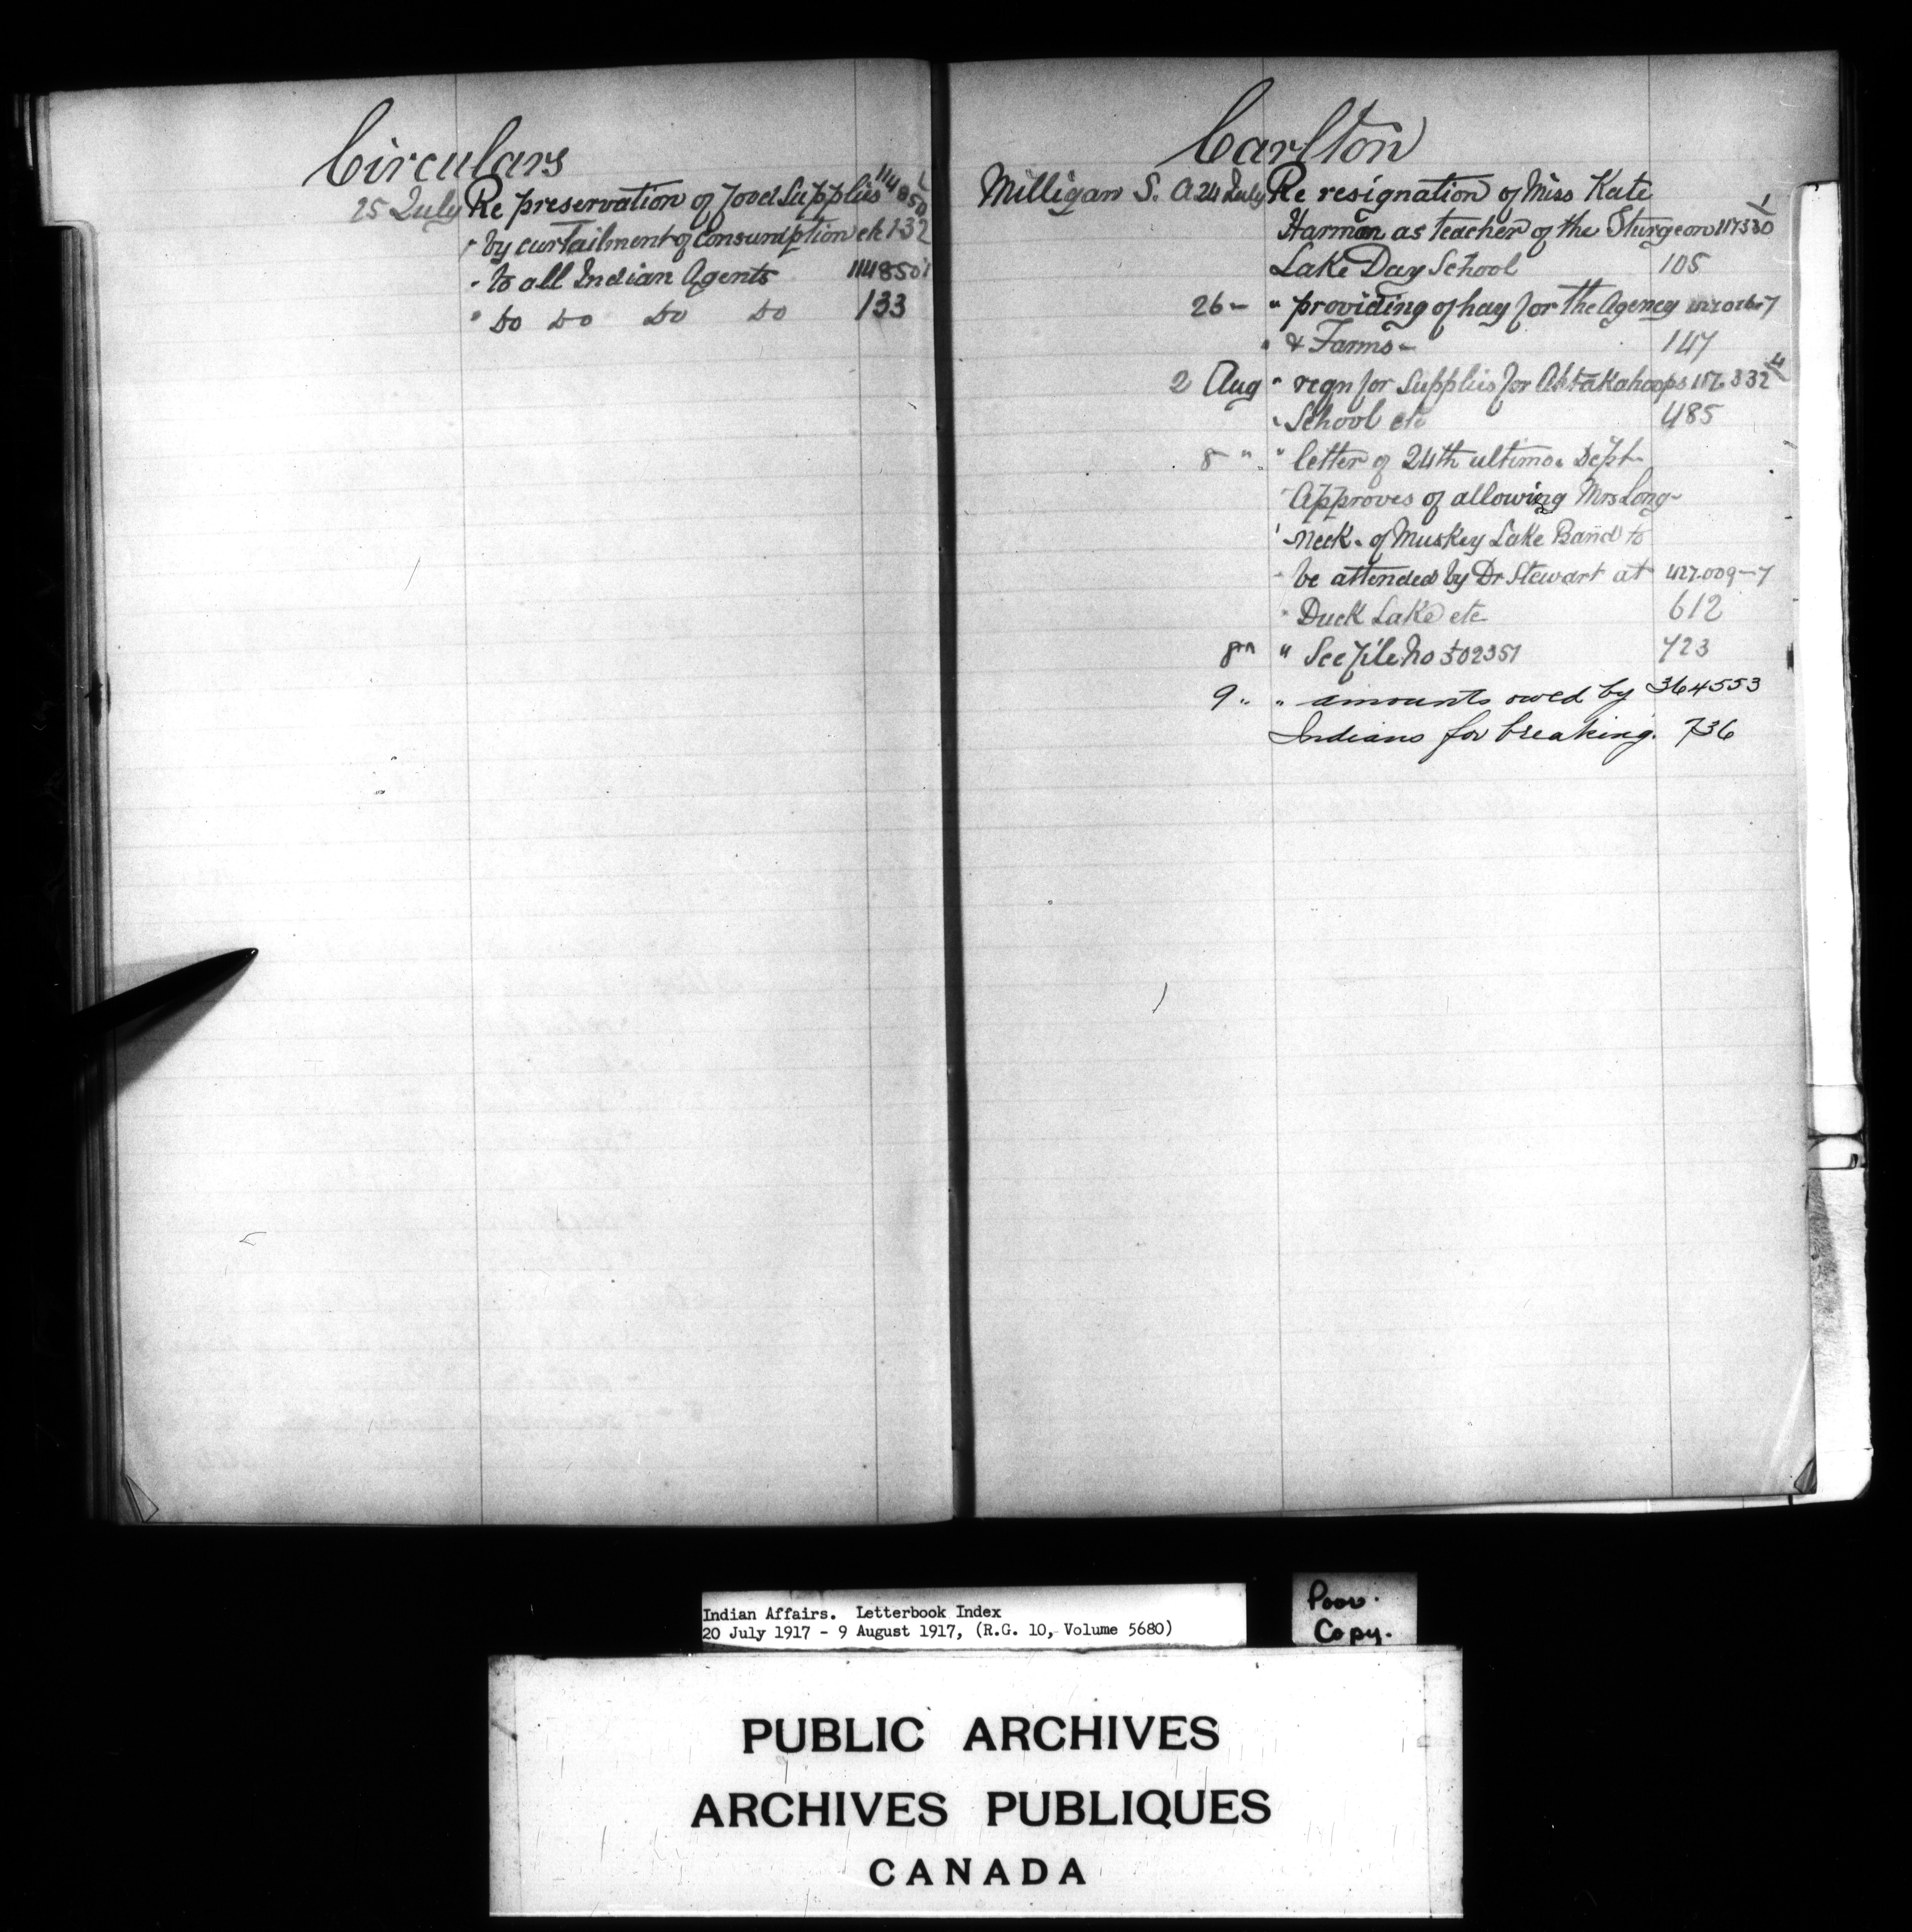 Circulars
25 July Re preservation of food Supplies 114850
" by curtailment of Consumption etc 132
" to all Indian Agents 114850
" Do Do Do Do 133
Carlton
Milligan S. A 24 July Re resignation of Miss Kate
Harmon as teacher of the Sturgeon 117330
Lake Day School 105
26 - " providing of hay for the Agency
" & Farms - 147
2 Aug " reqn for Supplies for Ahtakahoops
" School etc 485
8 " " letter of 24th ultimo. Dept
Approves of allowing Mrs Long-
Neck. of Muskey Lake Band to
be attended by Dr Stewart at 427.009-7
" Duck Lake etc 612
8 " " See file No 502351 723
9 " " amounts owed by 364553
Indians for breaking. 736
Indian Affairs. Letterbook Index
20 July 1917 - 9 August 1917, (R.G. 10, Volume 5680)
Poor.
Copy.
PUBLIC ARCHIVES
ARCHIVES PUBLIQUES
CANADA